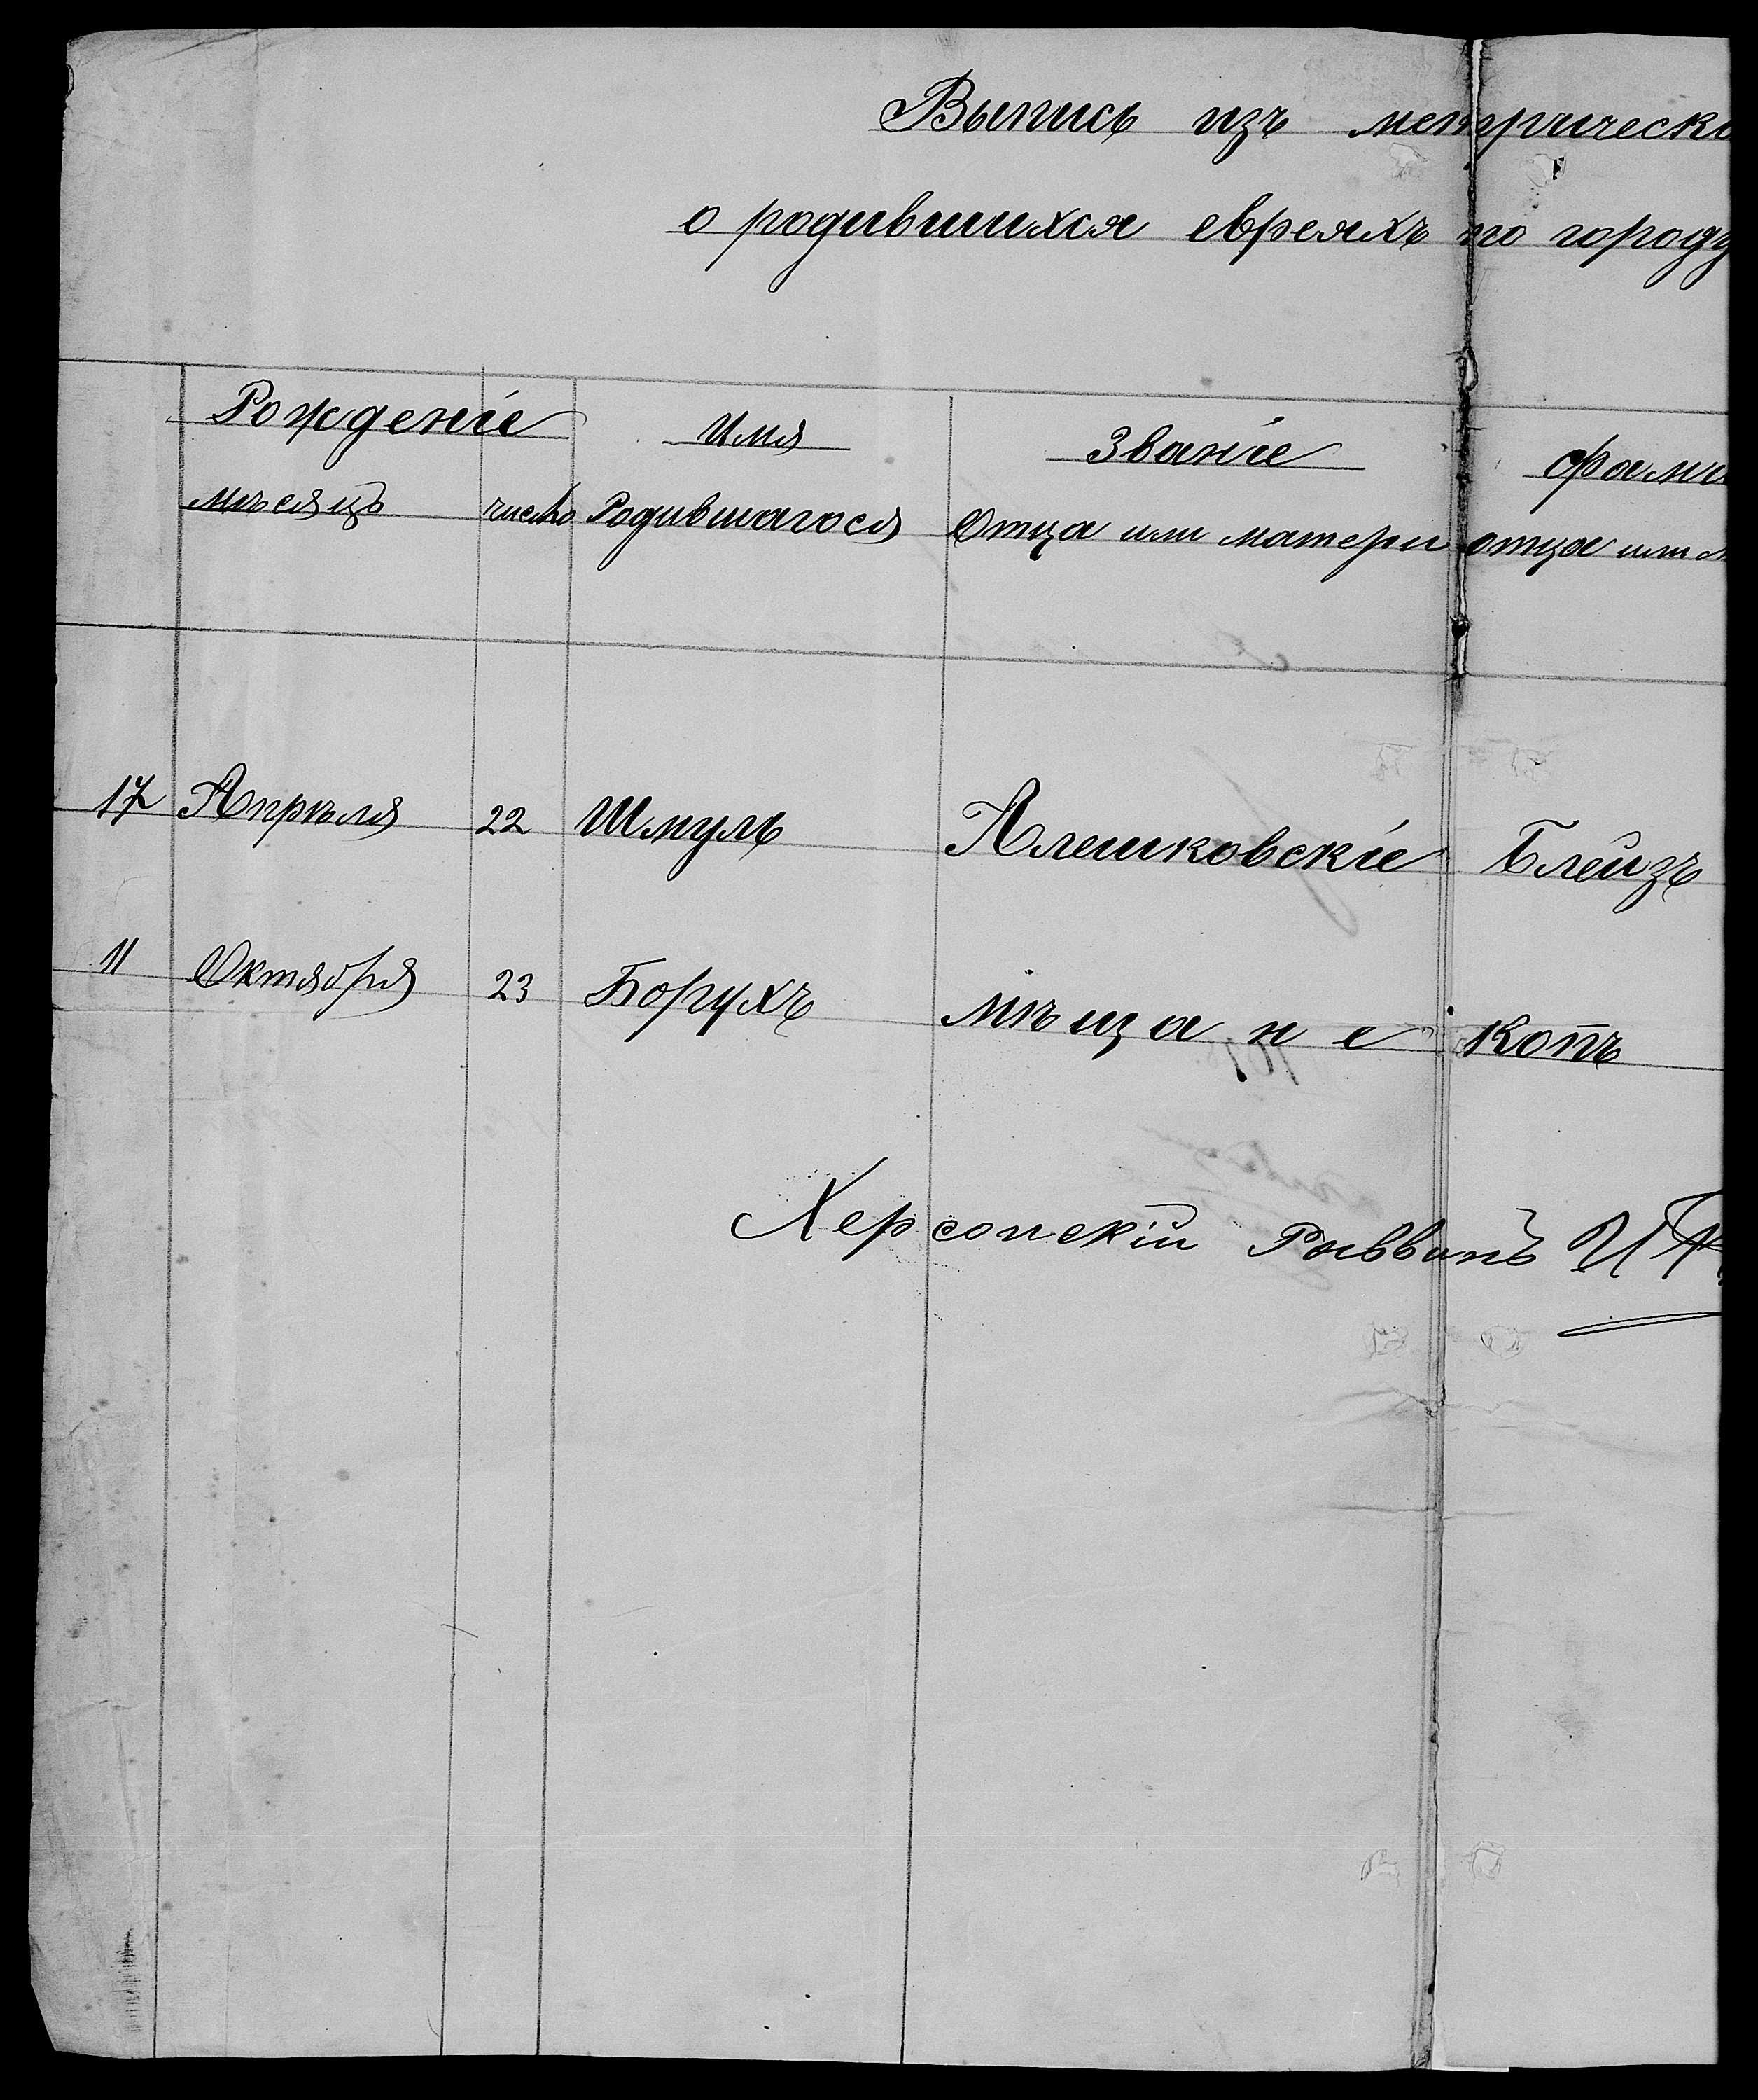 Выпись изъ метрическо
о родившихся евреяхъ по городу
Рожденіе Имя Званіе Фами
мѣсяцъ число Родившагося Отца или матери отца или м
17 Апрѣля 22 Шмуль Алешковскіе Блейзъ
11 Октября 23 Борухъ мѣщане Котъ
Херсонскій Раввинъ